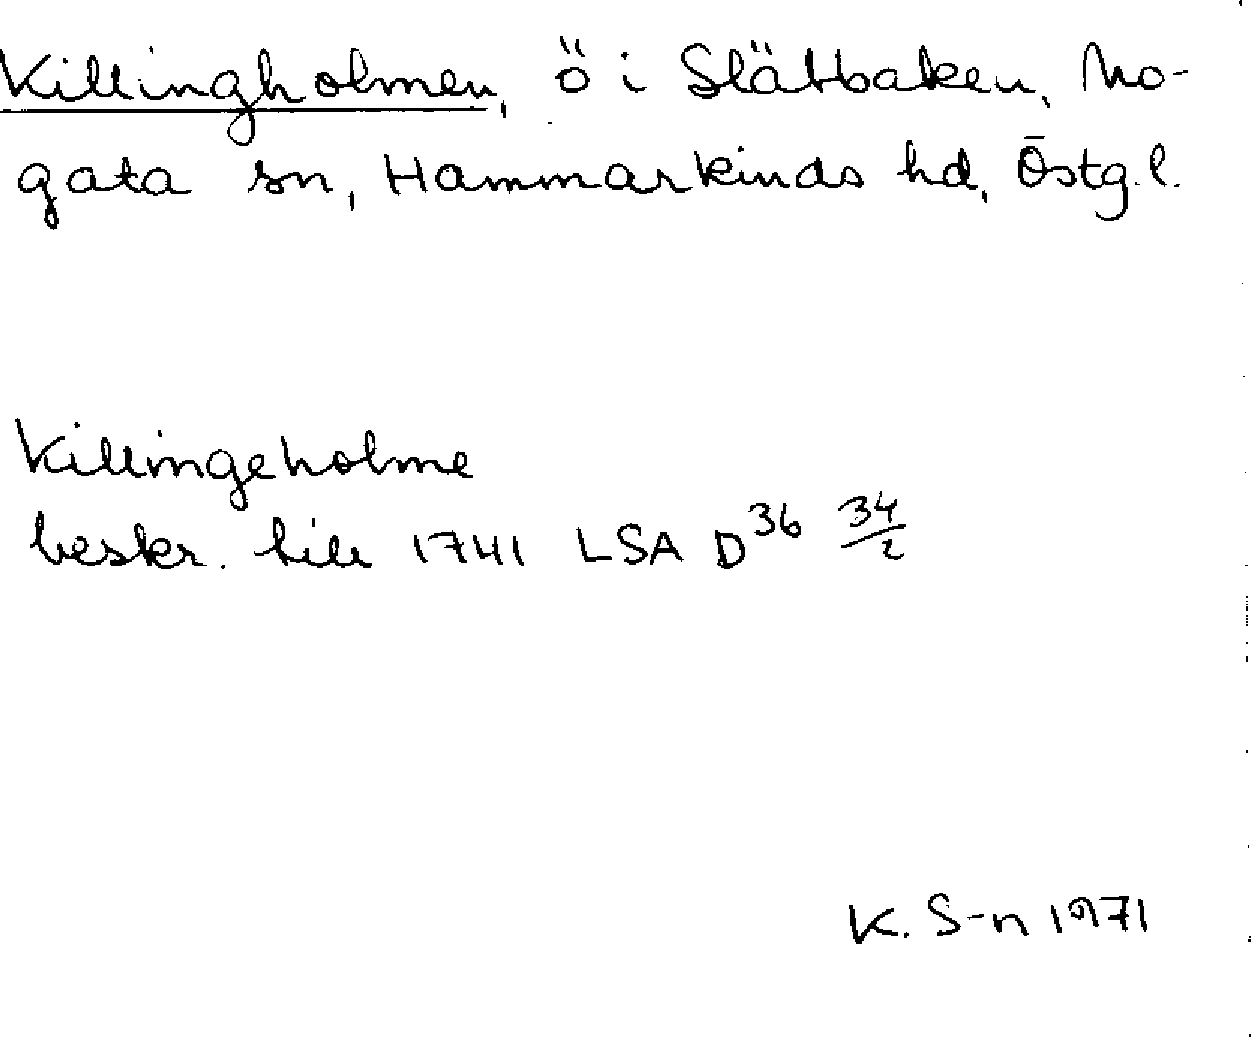 Killingholmen, ö i Slätbaken, Mo-
gata sn, Hammarkinds hd, Östg.l.
Killingeholme
beskr. till 1741 LSA D36 34/2
K. S-n 1971